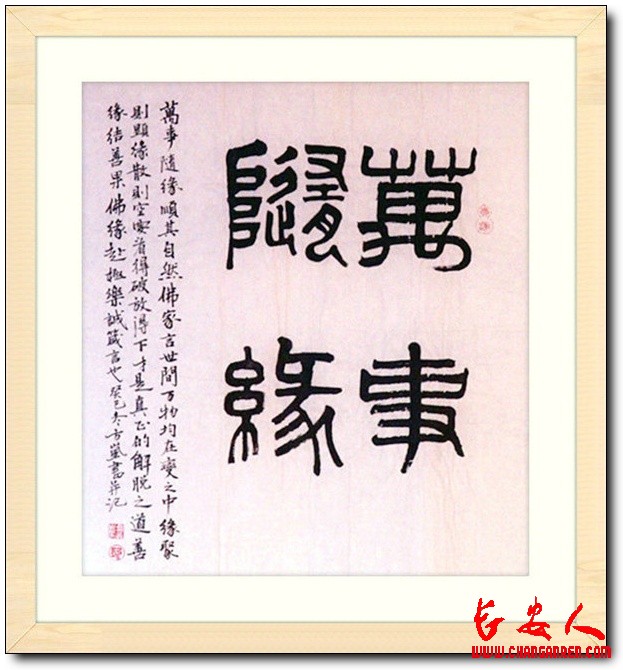 萬事
隨緣
萬事隨緣順其自然佛家言世間万物均在變之中緣聚
则顯緣散则空看得破放得下才是真正的解脱之道善
缘结善果佛缘赴極樂誠箴言也癸巳冬方嵐書并记
长安人
WWW.CHANGANREN.COM